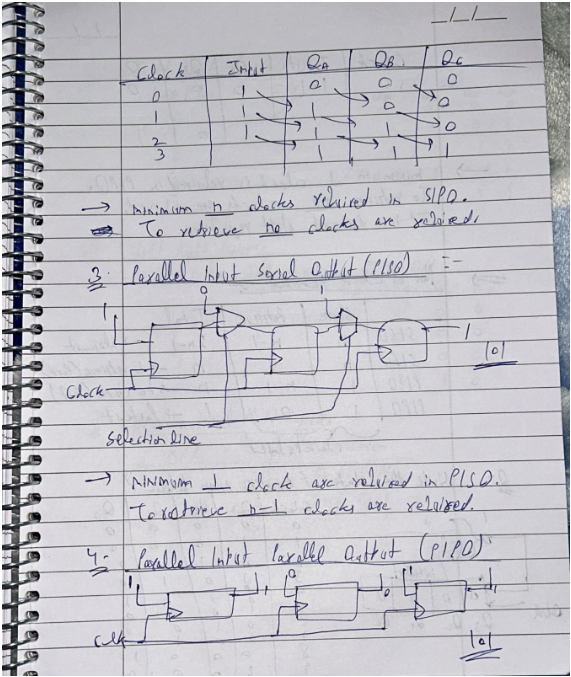 _/_/_
Clock Input QA QB QC
0 1 0 0 0
1 1 1 0 0
2 1 1 1 0
3 1 1 1
→ minimum n clocks required in SIPO.
→ To retrieve no clocks are required.
3. Parallel Input Serial Output (PISO) :-
0 1
1 1
101
Clock
Selection line
→ Minimum 1 clock are required in PISO.
To retrieve n-1 clocks are required.
4.- Parallel Input Parallel Output (PIPO)
1 1 0 0 1 1
Clk
101